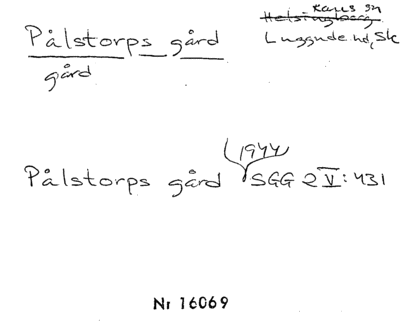 Pålstorps gård
gård
Raus sn
Helsingborg
Luggude hd, Sk
1944
Pålstorps gård SGG 2 V: 431
Nr 16069